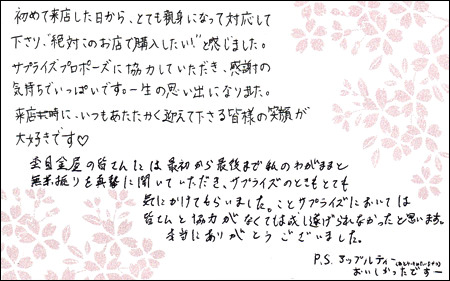 初めて来店した日から、とても親身になって対応して
下さり、"絶対このお店で購入したい!"と感じました。
サプライズプロポーズに協力していただき、感謝の
気持ちでいっぱいです。一生の思い出になりました。
来店時に、いつもあたたかく迎えて下さる皆様の笑顔が
大好きです♡
杢目金屋の皆さんには最初から最後まで私のわがままと
無茶振りを真摯に聞いていただき、サプライズのときもとても
気にかけてもらいました。ことサプライズにおいては
皆さんと協力がなくては成し遂げられなかったと思います。
本当にありがとうございました。
P.S. アップルティー
おいしかったですー